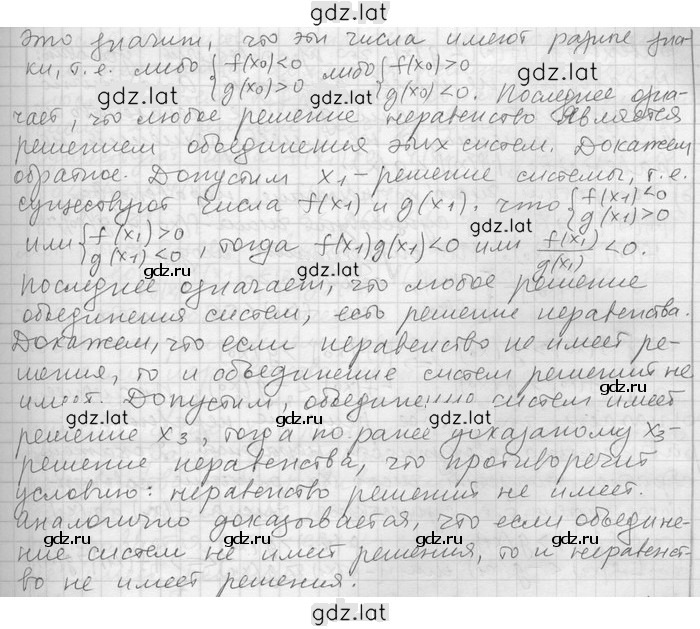 gdz.lat
это значит, что эти числа имеют разные зна-
ки, т.е. либо { f(x0)<0 g(x0)>0 либо { f(x0)>0 g(x0)<0. Последнее озна-
gdz.lat gdz.lat
чает, что любое решение неравенство является
решением объединения этих систем. Докажем
обратное. Допустим x1 – решение системы, т.е.
gdz.lat gdz.lat
существуют числа f(x1) и g(x1), что { f(x1)<0 g(x1)>0
или { f(x1)>0 g(x1)<0 , тогда f(x1)g(x1)<0 или f(x1)/g(x1) <0.
gdz.lat gdz.lat
последнее означает, что любое решение
объединения систем, есть решение неравенства.
gdz.lat gdz.lat
Докажем, что если неравенство не имеет ре-
шения, то и объединение систем решений не
gdz.lat
имеет. Допустим, объединение систем имеет
gdz.lat
решение x3, тогда по ранее доказаному x3-
решение неравенства, что противоречит
gdz.lat gdz.lat
условию: неравенство решений не имеет.
аналогично доказывается, что если объедине-
gdz.lat
ние систем не имеет решения, то и неравенст-
gdz.lat
во не имеет решения.
gdz.lat